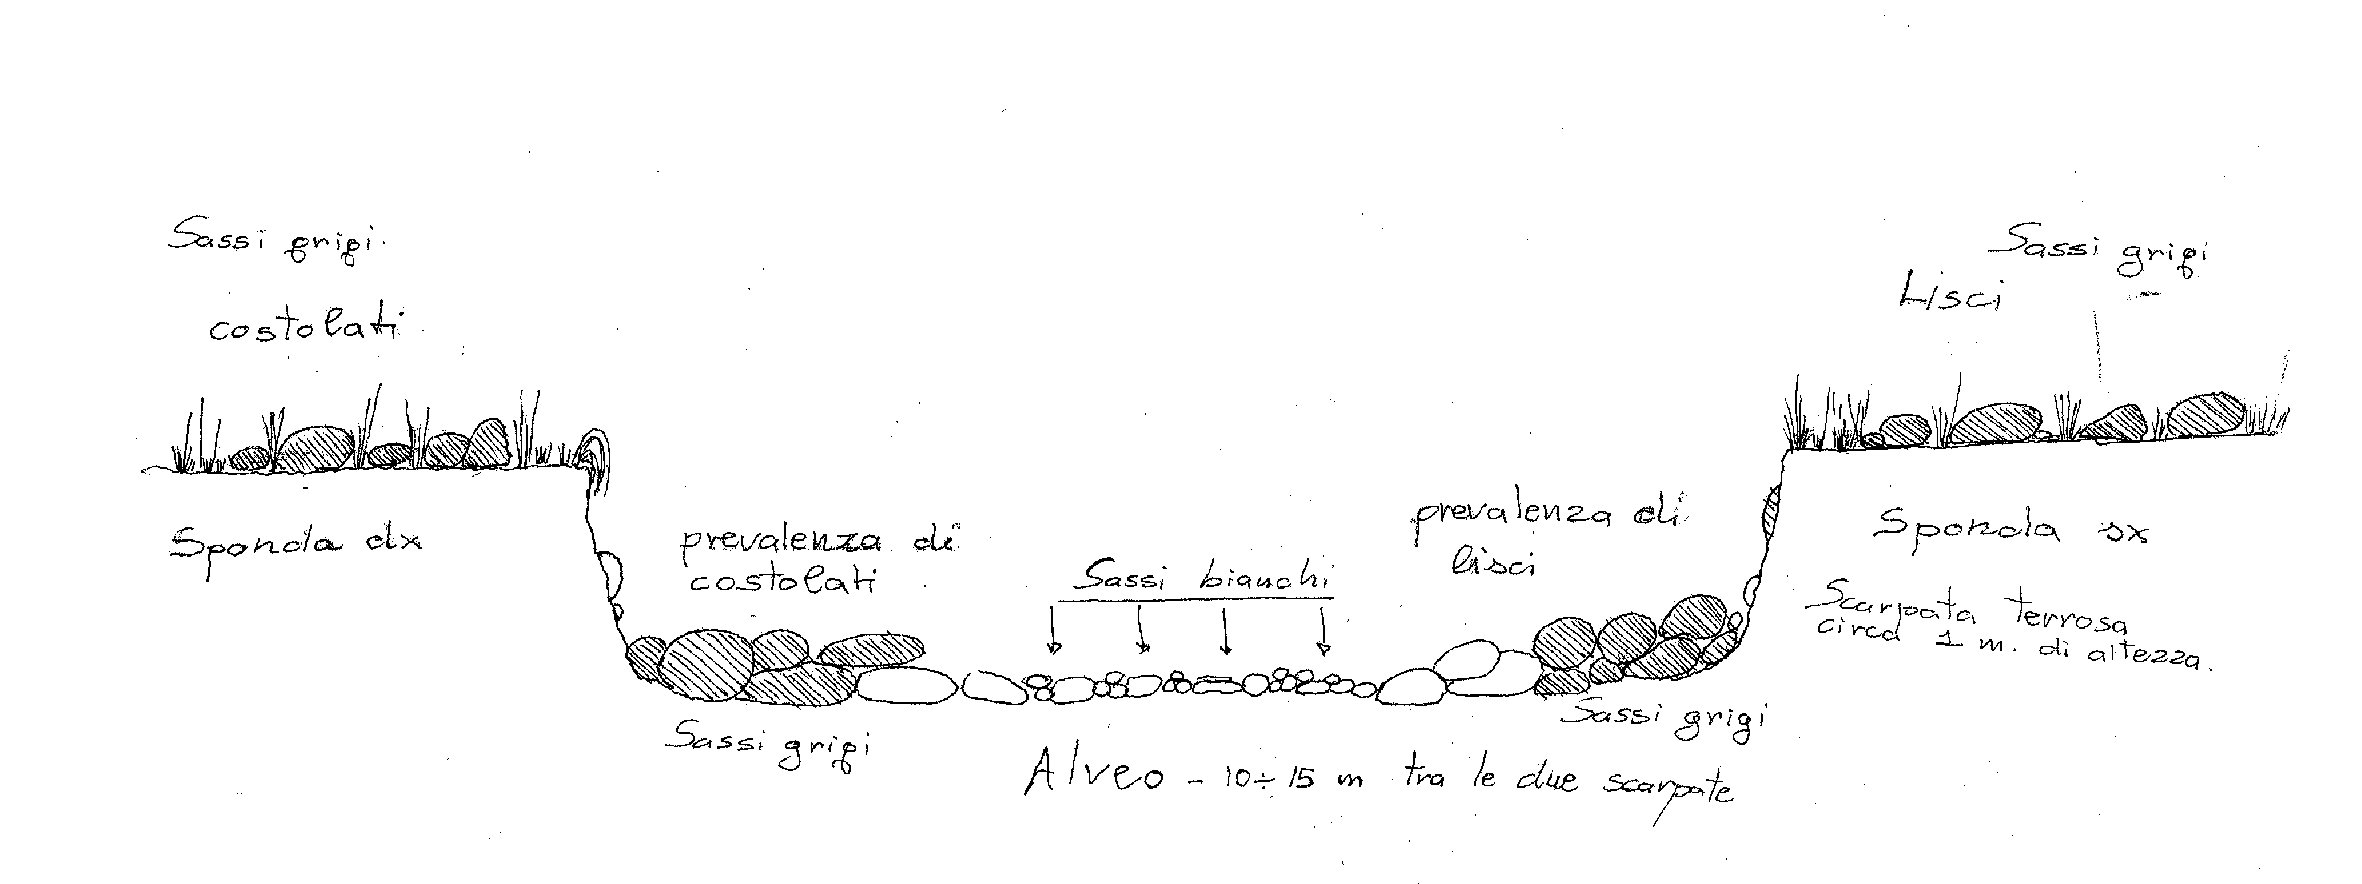 Sassi grigi
costolati
Sassi grigi
Lisci
Sponda dx
prevalenza di
costolati
Sassi bianchi
prevalenza di
lisci
Sponda sx
Scarpata terrosa
circa 1 m. di altezza.
Sassi grigi
Sassi grigi
Alveo - 10÷15 m tra le due scarpate